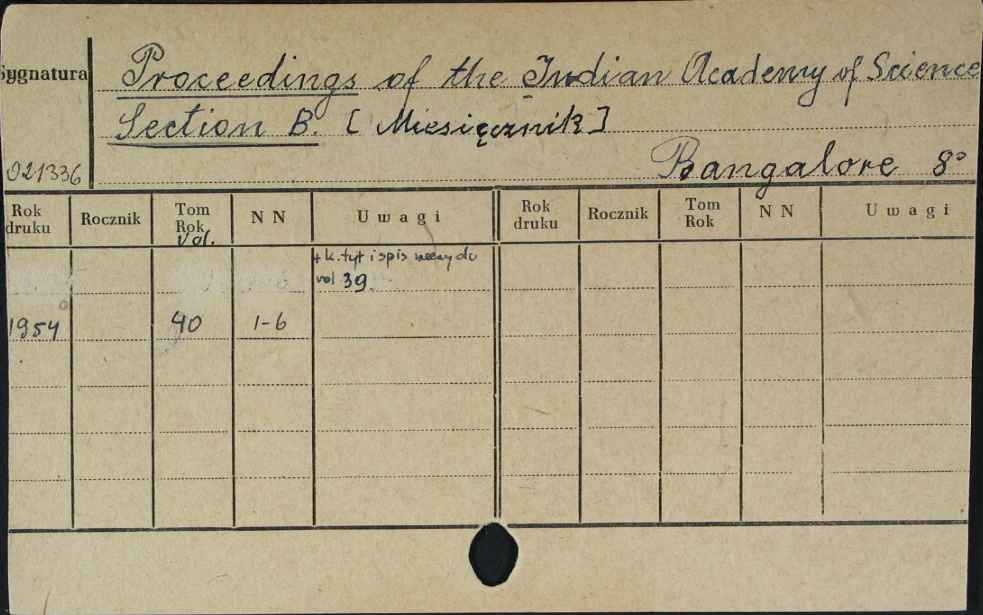 Sygnatura
Proceedings of the Indian Academy of Science
Section B. [Miesięcznik]
021336
Bangalore 8°
Rok druku Rocznik Tom Rok Vol. N N Uwagi Rok druku Rocznik Tom Rok N N Uwagi
+ k. tyt i spis do
vol 39.
1954 40 1-6